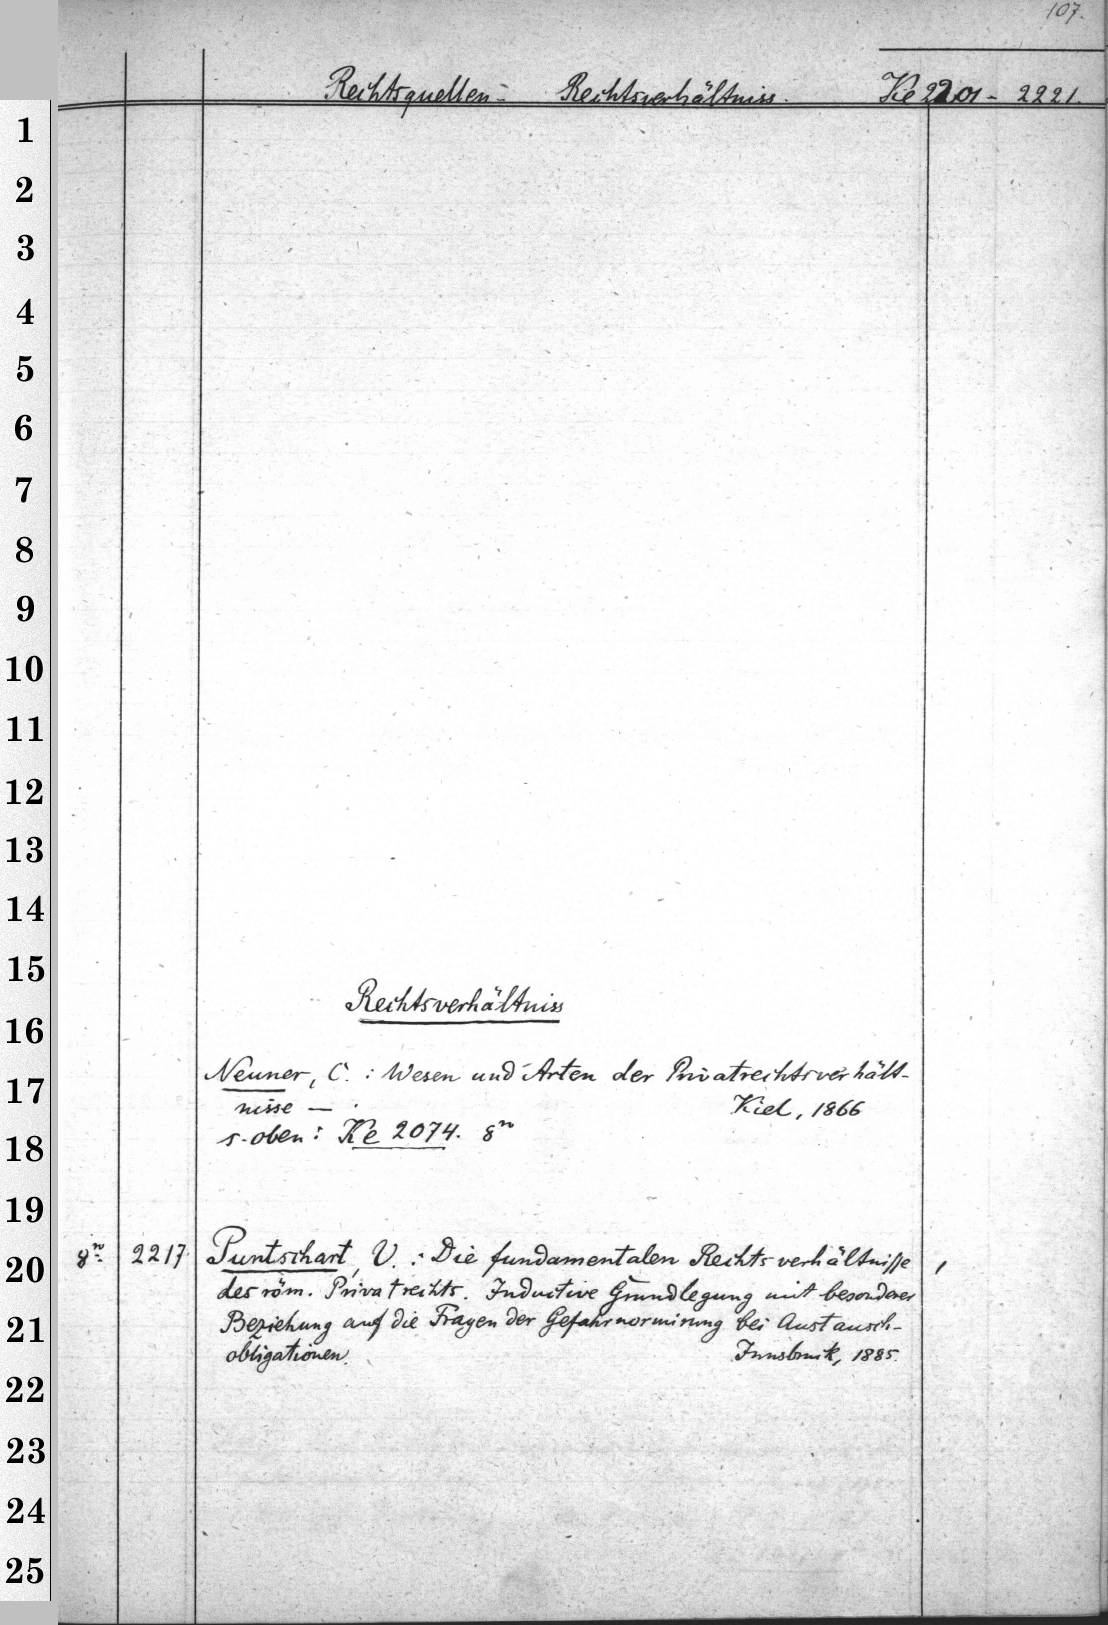 107.
Rechtsquellen - Rechtsverhältniss. Ke 2201 - 2221.
1
2
3
4
5
6
7
8
9
10
11
12
13
14
15
Rechtsverhältniss
16
17 Neuner, C. : Wesen und Arten der Privatrechtsverhält-
nisse — . Kiel, 1866
18 s. oben: Ke 2074. 8º
19
20 8º 2217. Puntschart, V. : Die fundamentalen Rechtsverhältnisse
des röm. Privatrechts. Inductive Grundlegung mit besonderer
21 Beziehung auf die Fragen der Gefahrnormirung bei Austausch-
obligationen. Innsbruck, 1885.
22
23
24
25